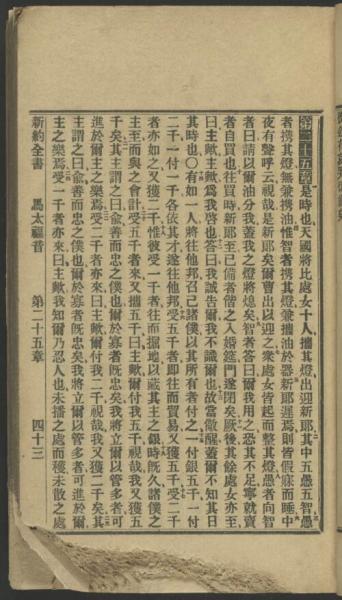 第二十五章是時也天國將比處女十人攜其燈出迎新耶其中五愚五智愚
者攜其燈無兼攜油惟智者攜其燈兼攜油於器新耶遲焉則皆假寐而睡中
夜有聲呼云視哉是新耶矣爾曹出以迎之衆處女皆起而整其燈愚者向智
者曰請以爾油分我蓋我之燈將熄矣智者答曰爾我用之恐其不足寧就賣
者自買也往買時新耶至已備者偕之入婚筵門遂閉矣厥後其餘處女亦至
曰主歟主歟爲我啓也答曰我誠告爾我不識爾也故當儆醒蓋爾不知其日
其時也〇有如一人將往他邦召己諸僕以其所有者付之一付銀五千一付
二千一付一千各依其才遂往他邦受五千者即往而貿易又獲五千受二千
者亦如之又獲二千惟彼受一千者往而掘地以藏其主之銀時旣久諸僕之
主至而與之會計受五千者來又攜五千曰主歟爾付我五千視哉我又獲五
千矣其主謂之曰僉善而忠之僕也爾於寡者旣忠矣我將立爾以管多者可
進於爾主之樂焉受二千者亦來曰主歟爾付我二千視哉我又獲二千矣其
主謂之曰僉善而忠之僕也爾於寡者旣忠矣我將立爾以管多者可進於爾
主之樂焉受一千者亦來曰主歟我知爾乃忍人也未播之處而穫未散之處
新約全書 馬太福音 第二十五章 四十三